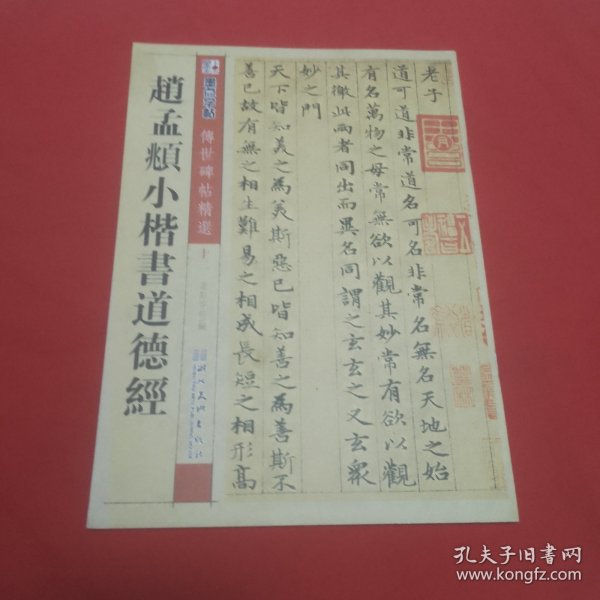 趙孟頫小楷書道德經
墨点字帖
傳世碑帖精選
十
湖北美術出版社
老子
道可道非常道名可名非常名無名天地之始
有名萬物之母常無欲以觀其妙常有欲以觀
其徼此兩者同出而異名同謂之玄玄之又玄衆
妙之門
天下皆知美之為美斯惡已皆知善之為善斯不
善已故有無之相生難易之相成長短之相形高
孔夫子旧书网
www.kongfz.com